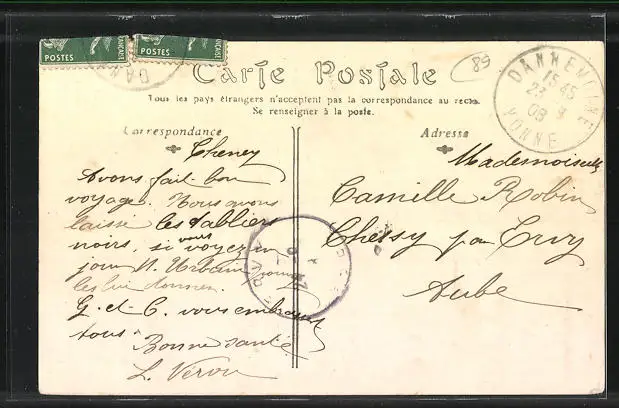 FRANÇAISE
POSTES
POSTES
FRANÇAISE
DANN
Carte Postale
89
Tous les pays étrangers n'acceptent pas la correspondance au recto.
Se renseigner à la poste.
DANNEMOINE
15 45
23
08
YONNE
Correspondance
Adresse
Cheney
Avons fait bon
voyage. Nous avons
laissé les tabliers
noirs, si vous voyez un
jour M. Urbain
les lui donner.
G. et C. vous embrassent
tous. Bonne santé
L. Véron
Mademoiselle
Camille Robin
Chessy par Ervy
Aube
ERVY